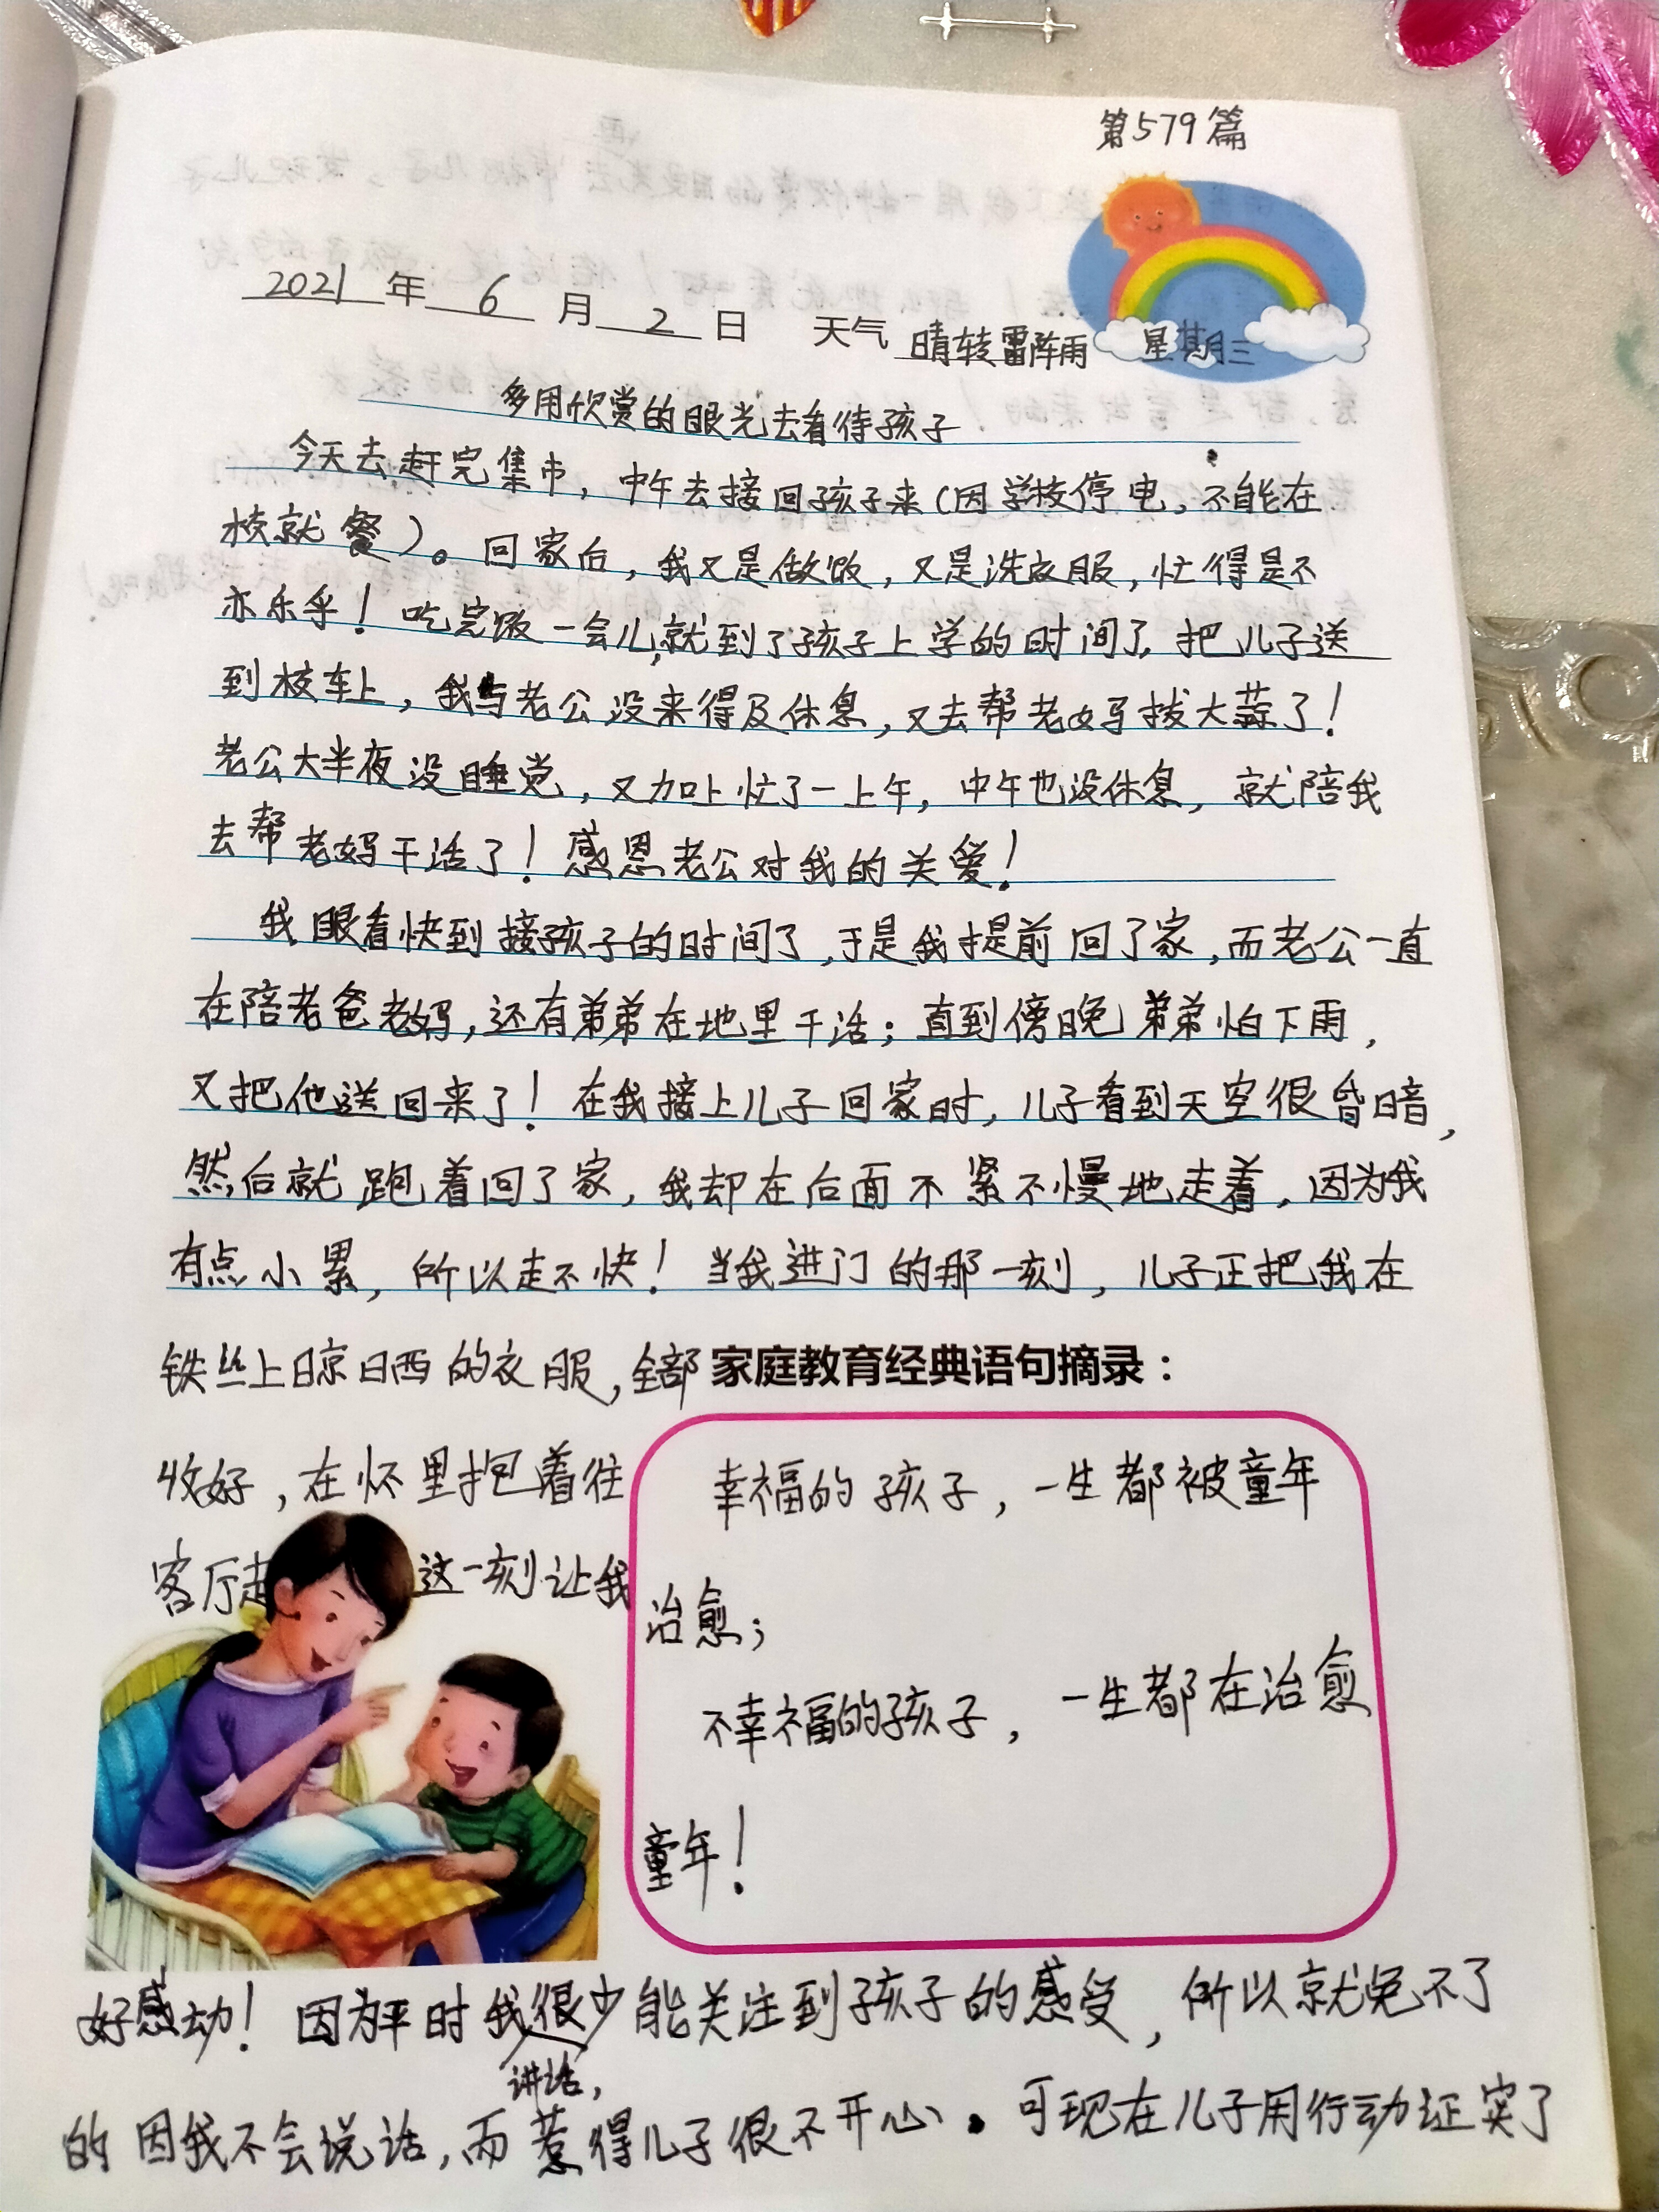 第579篇
2021年6月2日 天气 晴转雷阵雨 星期三
多用欣赏的眼光去看待孩子
今天去赶完集市，中午去接回孩子来（因学校停电，不能在
校就餐）。回家后，我又是做饭，又是洗衣服，忙得是不
亦乐乎！吃完饭一会儿，就到了孩子上学的时间了，把儿子送
到校车上，我与老公没来得及休息，又去帮老妈拔大蒜了！
老公大半夜没睡觉，又加上忙了一上午，中午也没休息，就陪我
去帮老妈干活了！感恩老公对我的关爱！
我眼看快到接孩子的时间了，于是我提前回了家，而老公一直
在陪老爸老妈，还有弟弟在地里干活；直到傍晚弟弟怕下雨，
又把他送回来了！在我接上儿子回家时，儿子看到天空很昏暗，
然后就跑着回了家，我却在后面不紧不慢地走着，因为我
有点小累，所以走不快！当我进门的那一刻，儿子正把我在
铁丝上晾晒的衣服，全部
收好，在怀里抱着往
客厅走 这一刻让我
家庭教育经典语句摘录：
幸福的孩子，一生都被童年
治愈；
不幸福的孩子，一生都在治愈
童年！
好感动！因为平时我很少能关注到孩子的感受，所以就免不了
讲话，
的因我不会说话，而惹得儿子很不开心。可现在儿子用行动证实了